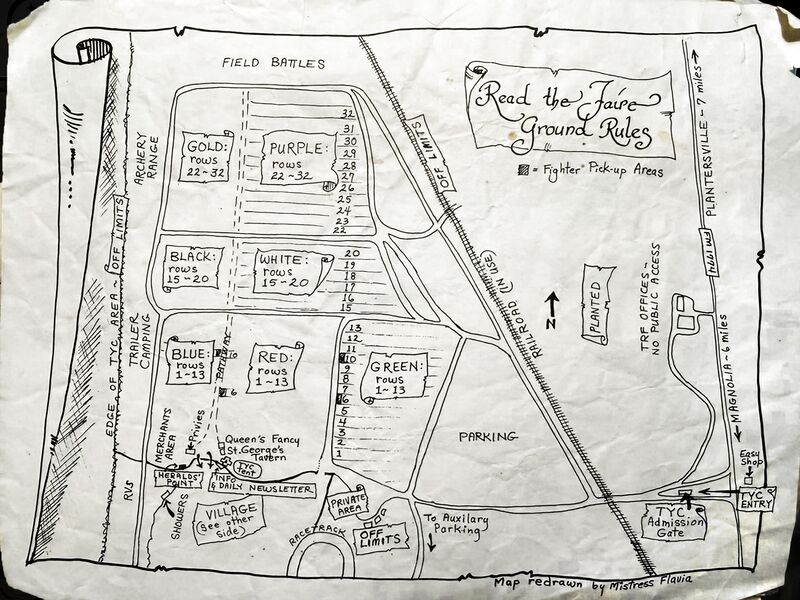 FIELD BATTLES
Read the Faire
Ground Rules
= Fighter Pick-up Areas
OFF LIMITS
PLANTERSVILLE ~ 7 miles
FM 1774
MAGNOLIA ~ 6 miles
ARCHERY
RANGE
GOLD:
rows
22~32
PURPLE:
rows
22~32
32
31
30
29
28
27
26
25
24
23
22
BLACK:
rows
15~20
WHITE:
rows
15~20
20
19
18
17
16
15
EDGE OF TYC AREA ~ OFF LIMITS
TRAILER
CAMPING
BLUE:
rows
1~13
PATHWAY
10
6
RED:
rows
1~13
13
12
11
10
9
8
7
6
5
4
3
2
1
GREEN:
rows
1~13
RAILROAD (IN USE)
N
PLANTED
TRF OFFICES~
NO PUBLIC ACCESS
PARKING
MERCHANTS
AREA
Privies
Queen's Fancy
St. George's
Tavern
TYC
Tent
HERALDS'
POINT
INFO
& DAILY NEWSLETTER
RVS
SHOWERS
VILLAGE
(See other
side)
RACETRACK
PRIVATE
AREA
OFF
LIMITS
To Auxilary
Parking
Easy
Shop
TYC
ENTRY
TYC
Admission
Gate
Map redrawn by Mistress Flavia